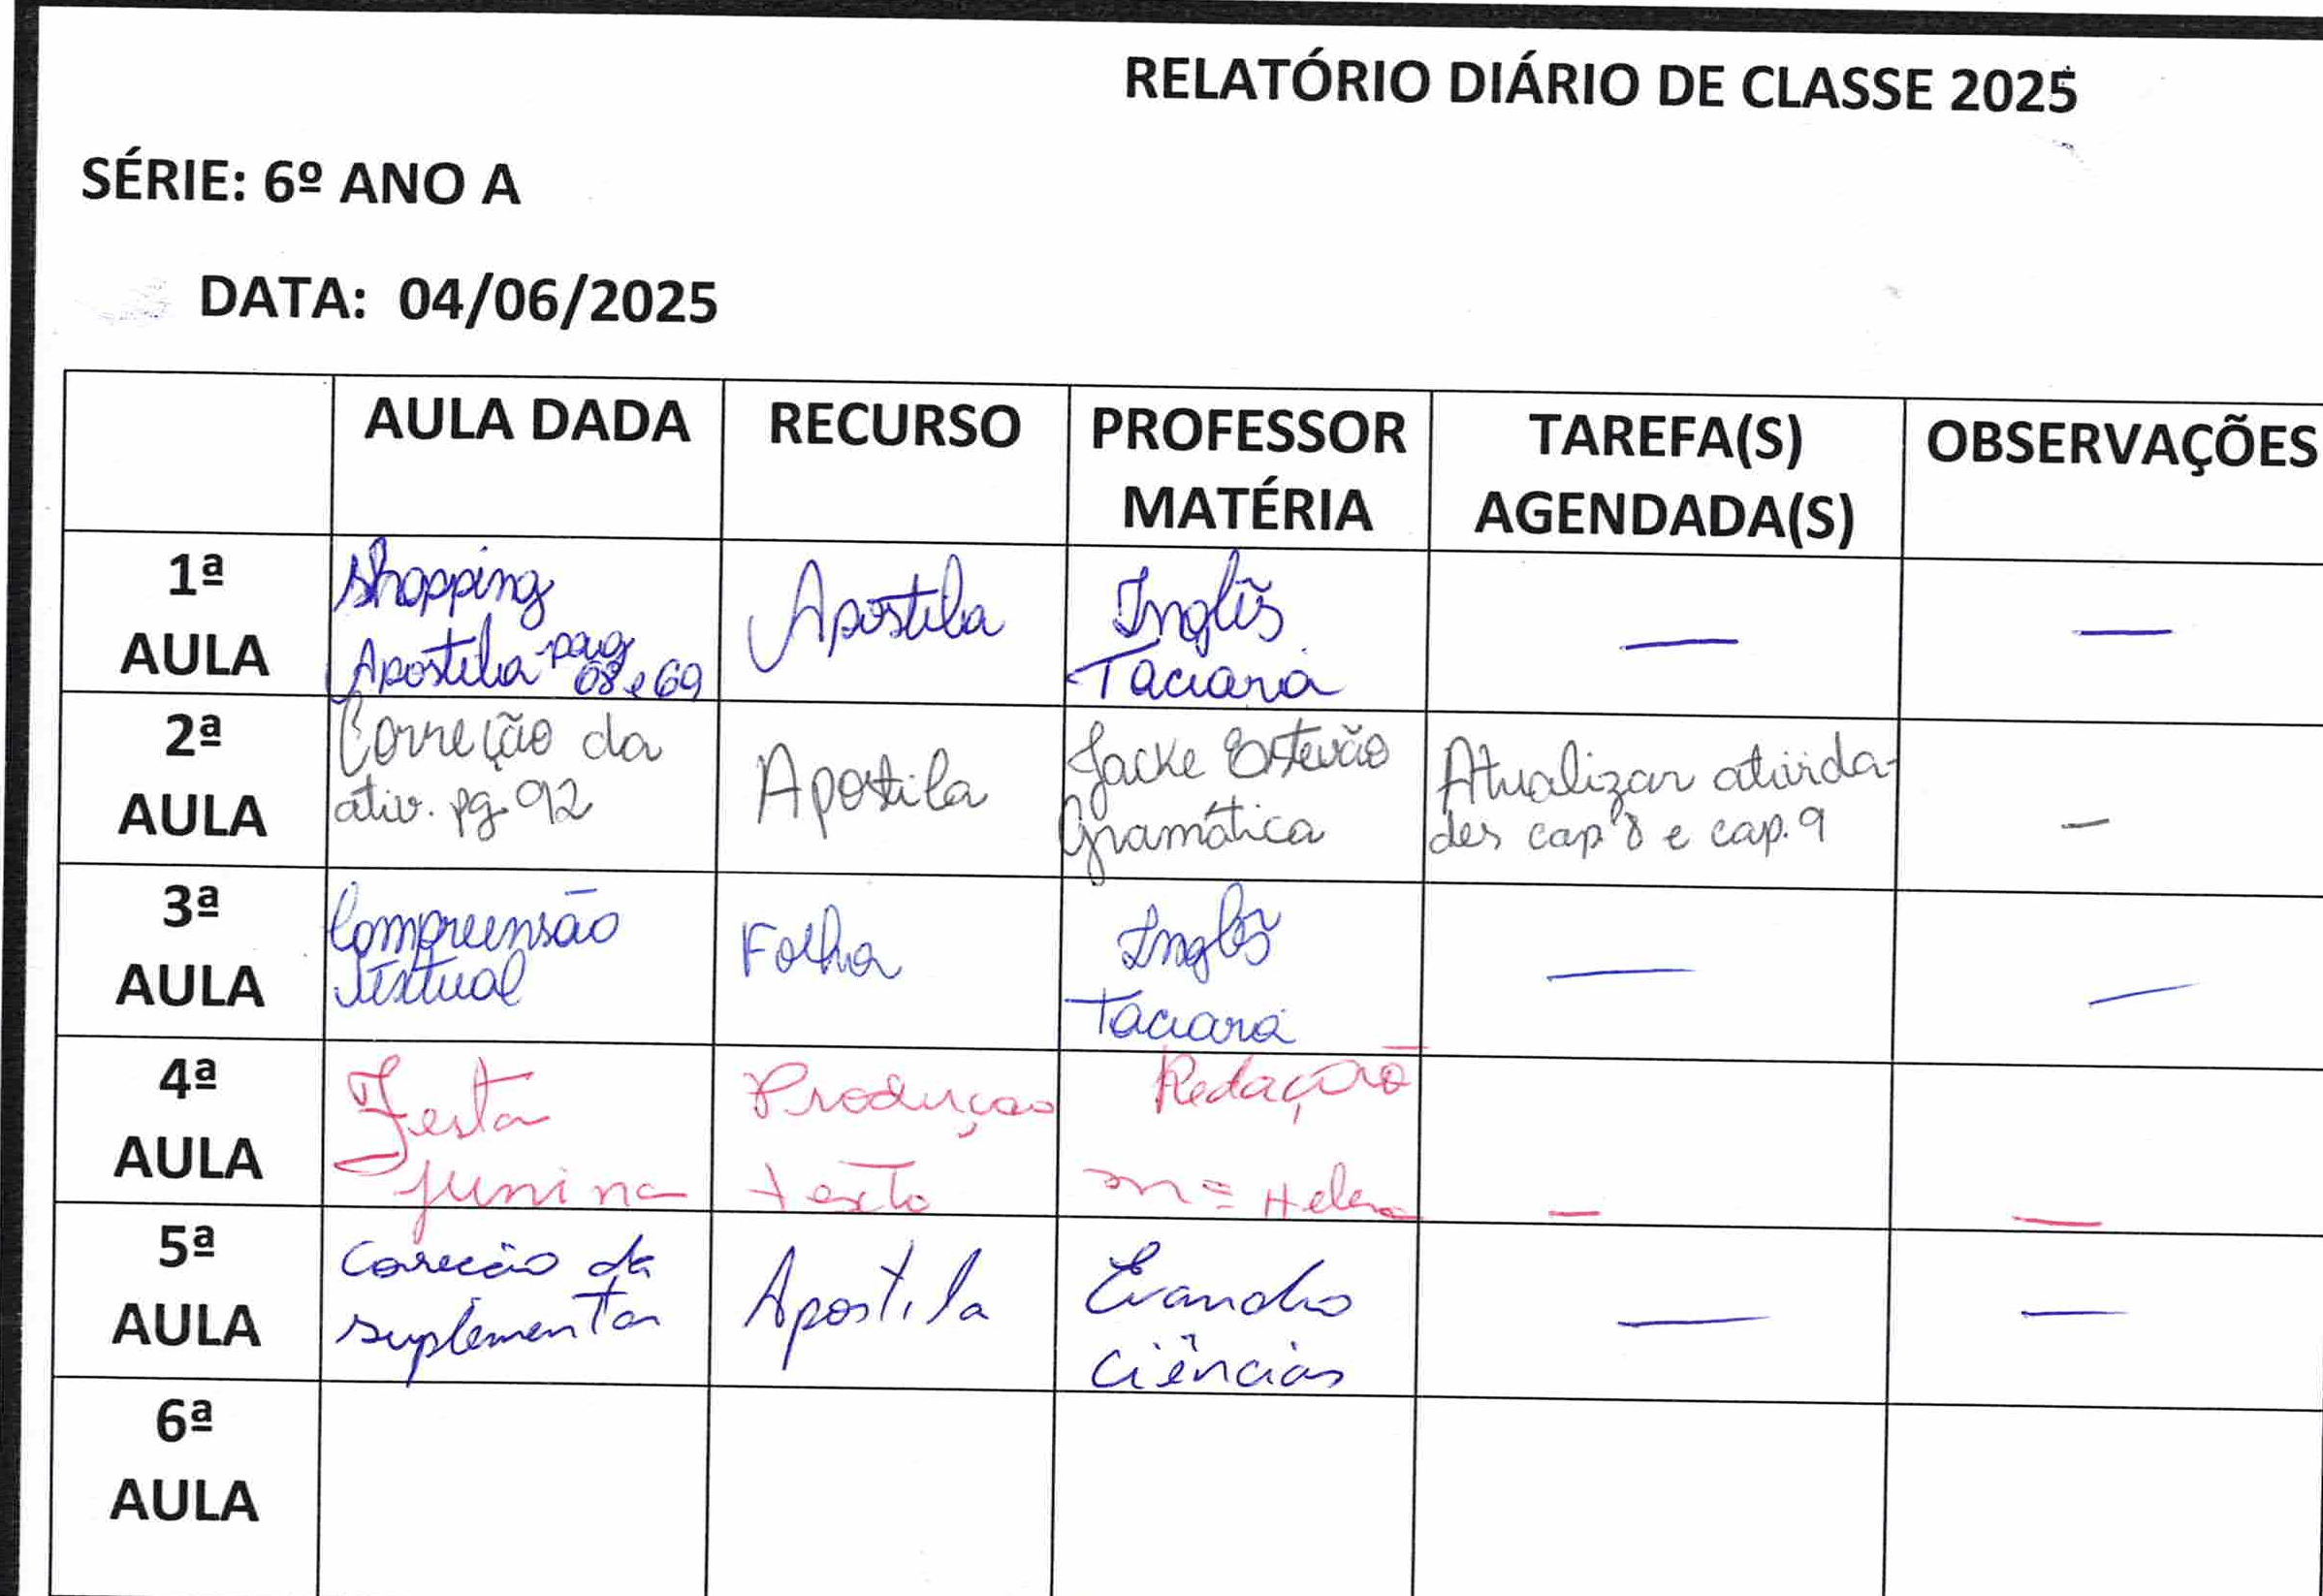 RELATÓRIO DIÁRIO DE CLASSE 2025
SÉRIE: 6º ANO A
DATA: 04/06/2025
AULA DADA
RECURSO
PROFESSOR
MATÉRIA
TAREFA(S)
AGENDADA(S)
OBSERVAÇÕES
1ª
AULA
Shopping
Apostila pag
68 e 69
Apostila
Inglês
Taciara
—
—
2ª
AULA
Correção da
ativ. pg. 92
Apostila
Jacke Estevão
Gramática
Atualizar ativida-
des cap. 8 e cap. 9
—
3ª
AULA
Compreensão
Textual
Folha
Inglês
Taciara
—
—
4ª
AULA
Festa
junina
Produção
texto
Redação
Mª Helena
—
—
5ª
AULA
Correção da
suplementar
Apostila
Evandro
Ciências
—
—
6ª
AULA